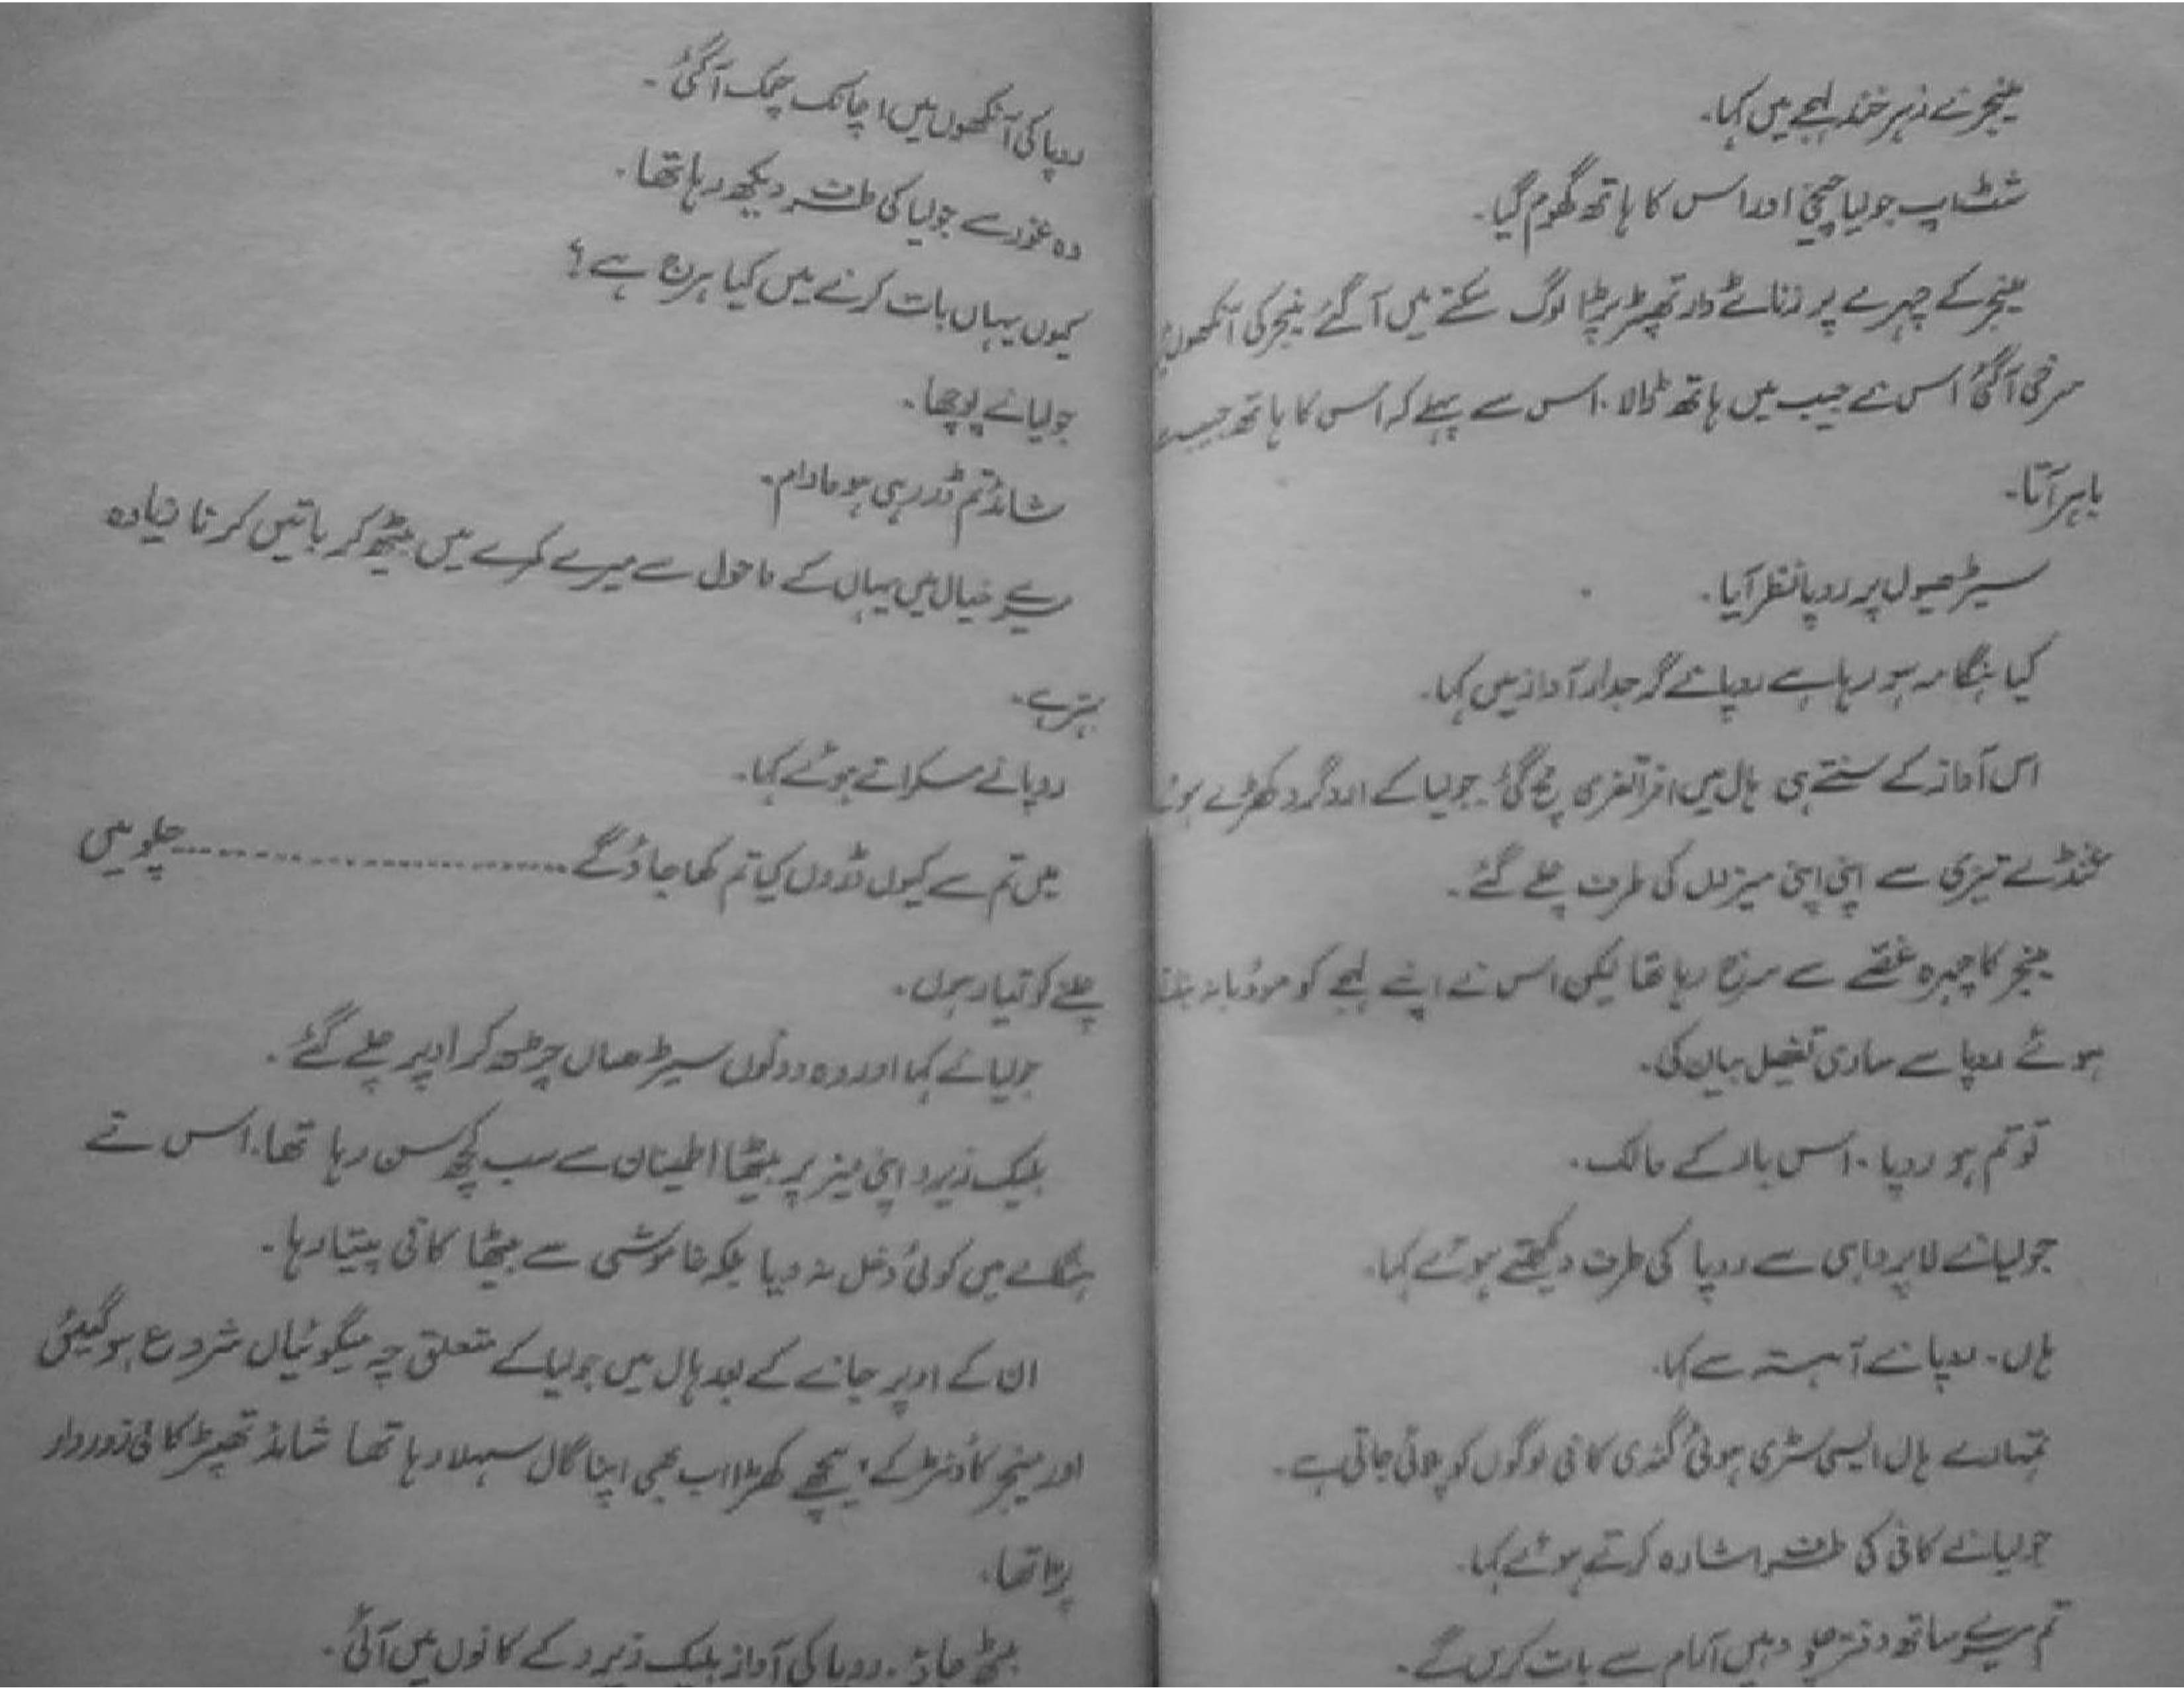 مینجر نے زہر خند لہجے میں کہا۔
شٹ اپ جولیا چیخی اور اس کا ہاتھ گھوم گیا۔
مینجر کے چہرے پر زناٹے دار تھپڑ پڑا لوگ سکتے میں آ گئے مینجر کی آنکھوں
سرخی آگئی اس نے جیب میں ہاتھ ڈالا۔ اس سے پہلے کہ اس کا ہاتھ جیب
باہر آتا۔
سیڑھیوں پر روپا نظر آیا۔
کیا ہنگامہ ہو رہا ہے روپا نے گرجدار آواز میں کہا۔
اس آواز کے سنتے ہی ہال میں افراتفری مچ گئی۔ جولیا کے اردگرد کھڑے ہوئے
غنڈے تیزی سے اپنی اپنی میزوں کی طرف چلے گئے۔
مینجر کا چہرہ غصے سے سرخ رہا تھا لیکن اس نے اپنے لہجے کو مودبانہ بناتے
ہوئے روپا سے ساری تفصیل بیان کی۔
تو تم ہو روپا۔ اس بار کے مالک۔
جولیا نے لاپرواہی سے روپا کی طرف دیکھتے ہوئے کہا۔
ہاں۔ روپا نے آہستہ سے کہا۔
تمہارے ہال ایسی سڑی ہوئی گندی کافی لوگوں کو پلائی جاتی ہے۔
جولیا نے کافی کی طرف اشارہ کرتے ہوئے کہا۔
تم میرے ساتھ دفتر چلو وہیں آرام سے بات کریں گے۔
روپا کی آنکھوں میں اچانک چمک آگئی۔
وہ غور سے جولیا کی طرف دیکھ رہا تھا۔
کیوں یہاں بات کرنے میں کیا ہرج ہے؟
جولیا نے پوچھا۔
شائد تم ڈر رہی ہو مادام۔
میرے خیال میں یہاں کے ماحول سے میرے کمرے میں بیٹھ کر باتیں کرنا زیادہ
بہتر ہے۔
روپا نے مسکراتے ہوئے کہا۔
میں تم سے کیوں ڈروں کیا تم کھا جاؤ گے ........................ چلو میں
چلنے کو تیار ہوں۔
جولیا نے کہا اور وہ دونوں سیڑھاں چڑھ کر اوپر چلے گئے۔
بلیک زیرو اپنی میز پر بیٹھا اطمینان سے سب کچھ سن رہا تھا۔ اس نے
ہنگامے میں کوئی دخل نہ دیا بلکہ خاموشی سے بیٹھا کافی پیتا رہا۔
ان کے اوپر جانے کے بعد ہال میں جولیا کے متعلق چہ میگوئیاں شروع ہو گیئں
اور مینجر کاؤنٹر کے پیچھے کھڑا اب بھی اپنا گال سہلا رہا تھا شائد تھپڑ کافی زوردار
پڑا تھا۔
بیٹھ جاؤ۔ روپا کی آواز بلیک زیرو کے کانوں میں آئی۔